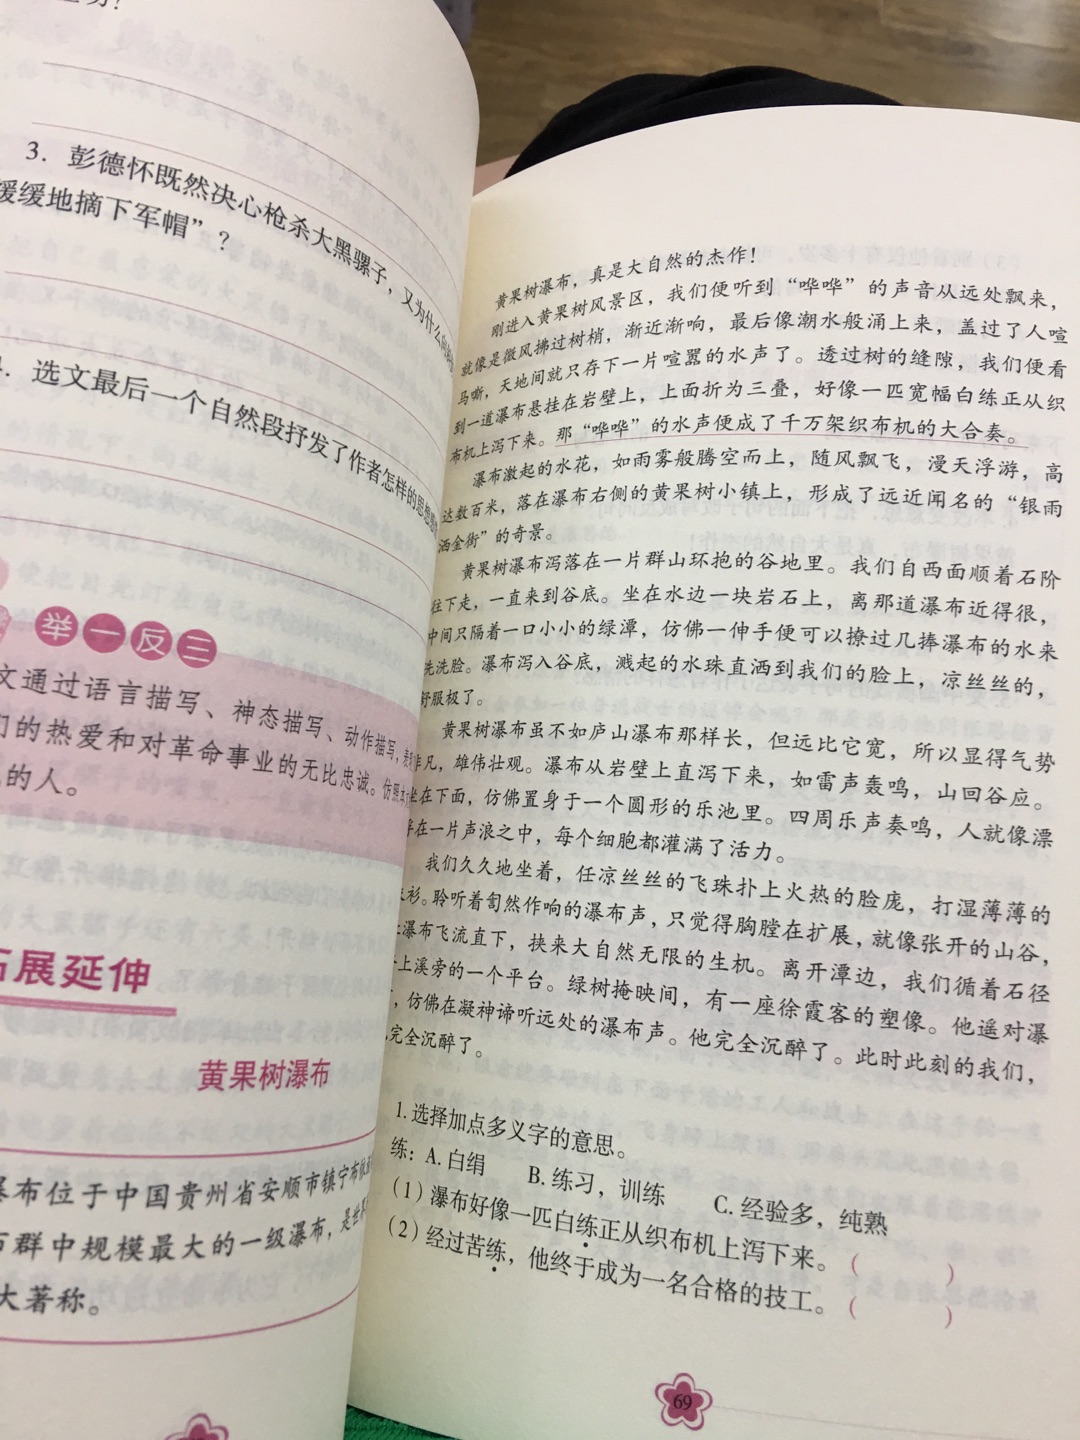 3. 彭德怀既然决心枪杀大黑骡子，又为什么
缓缓地摘下军帽”？
选文最后一个自然段抒发了作者怎样的思想
举一反三
文通过语言描写、神态描写、动作描写，表
们的热爱和对革命事业的无比忠诚。仿照本
的人。
展延伸
黄果树瀑布
瀑布位于中国贵州省安顺市镇宁布依
石群中规模最大的一级瀑布，是世
大著称。
黄果树瀑布，真是大自然的杰作！
刚进入黄果树风景区，我们便听到“哗哗”的声音从远处飘来，
就像是微风拂过树梢，渐近渐响，最后像潮水般涌上来，盖过了人喧
马嘶，天地间就只存下一片喧嚣的水声了。透过树的缝隙，我们便看
到一道瀑布悬挂在岩壁上，上面折为三叠，好像一匹宽幅白练正从织
布机上泻下来。那“哗哗”的水声便成了千万架织布机的大合奏。
瀑布激起的水花，如雨雾般腾空而上，随风飘飞，漫天浮游，高
达数百米，落在瀑布右侧的黄果树小镇上，形成了远近闻名的“银雨
洒金街”的奇景。
黄果树瀑布泻落在一片群山环抱的谷地里。我们自西面顺着石阶
往下走，一直来到谷底。坐在水边一块岩石上，离那道瀑布近得很，
中间只隔着一口小小的绿潭，仿佛一伸手便可以撩过几捧瀑布的水来
洗洗脸。瀑布泻入谷底，溅起的水珠直洒到我们的脸上，凉丝丝的，
舒服极了。
黄果树瀑布虽不如庐山瀑布那样长，但远比它宽，所以显得气势
非凡，雄伟壮观。瀑布从岩壁上直泻下来，如雷声轰鸣，山回谷应。
坐在下面，仿佛置身于一个圆形的乐池里。四周乐声奏鸣，人就像漂
浮在一片声浪之中，每个细胞都灌满了活力。
我们久久地坐着，任凉丝丝的飞珠扑上火热的脸庞，打湿薄薄的
衣衫。聆听着訇然作响的瀑布声，只觉得胸膛在扩展，就像张开的山谷，
让瀑布飞流直下，挟来大自然无限的生机。离开潭边，我们循着石径
上溪旁的一个平台。绿树掩映间，有一座徐霞客的塑像。他遥对瀑
，仿佛在凝神谛听远处的瀑布声。他完全沉醉了。此时此刻的我们，
完全沉醉了。
1. 选择加点多义字的意思。
练：A. 白绢 B. 练习，训练 C. 经验多，纯熟
（1）瀑布好像一匹白练正从织布机上泻下来。（ ）
（2）经过苦练，他终于成为一名合格的技工。（ ）
69